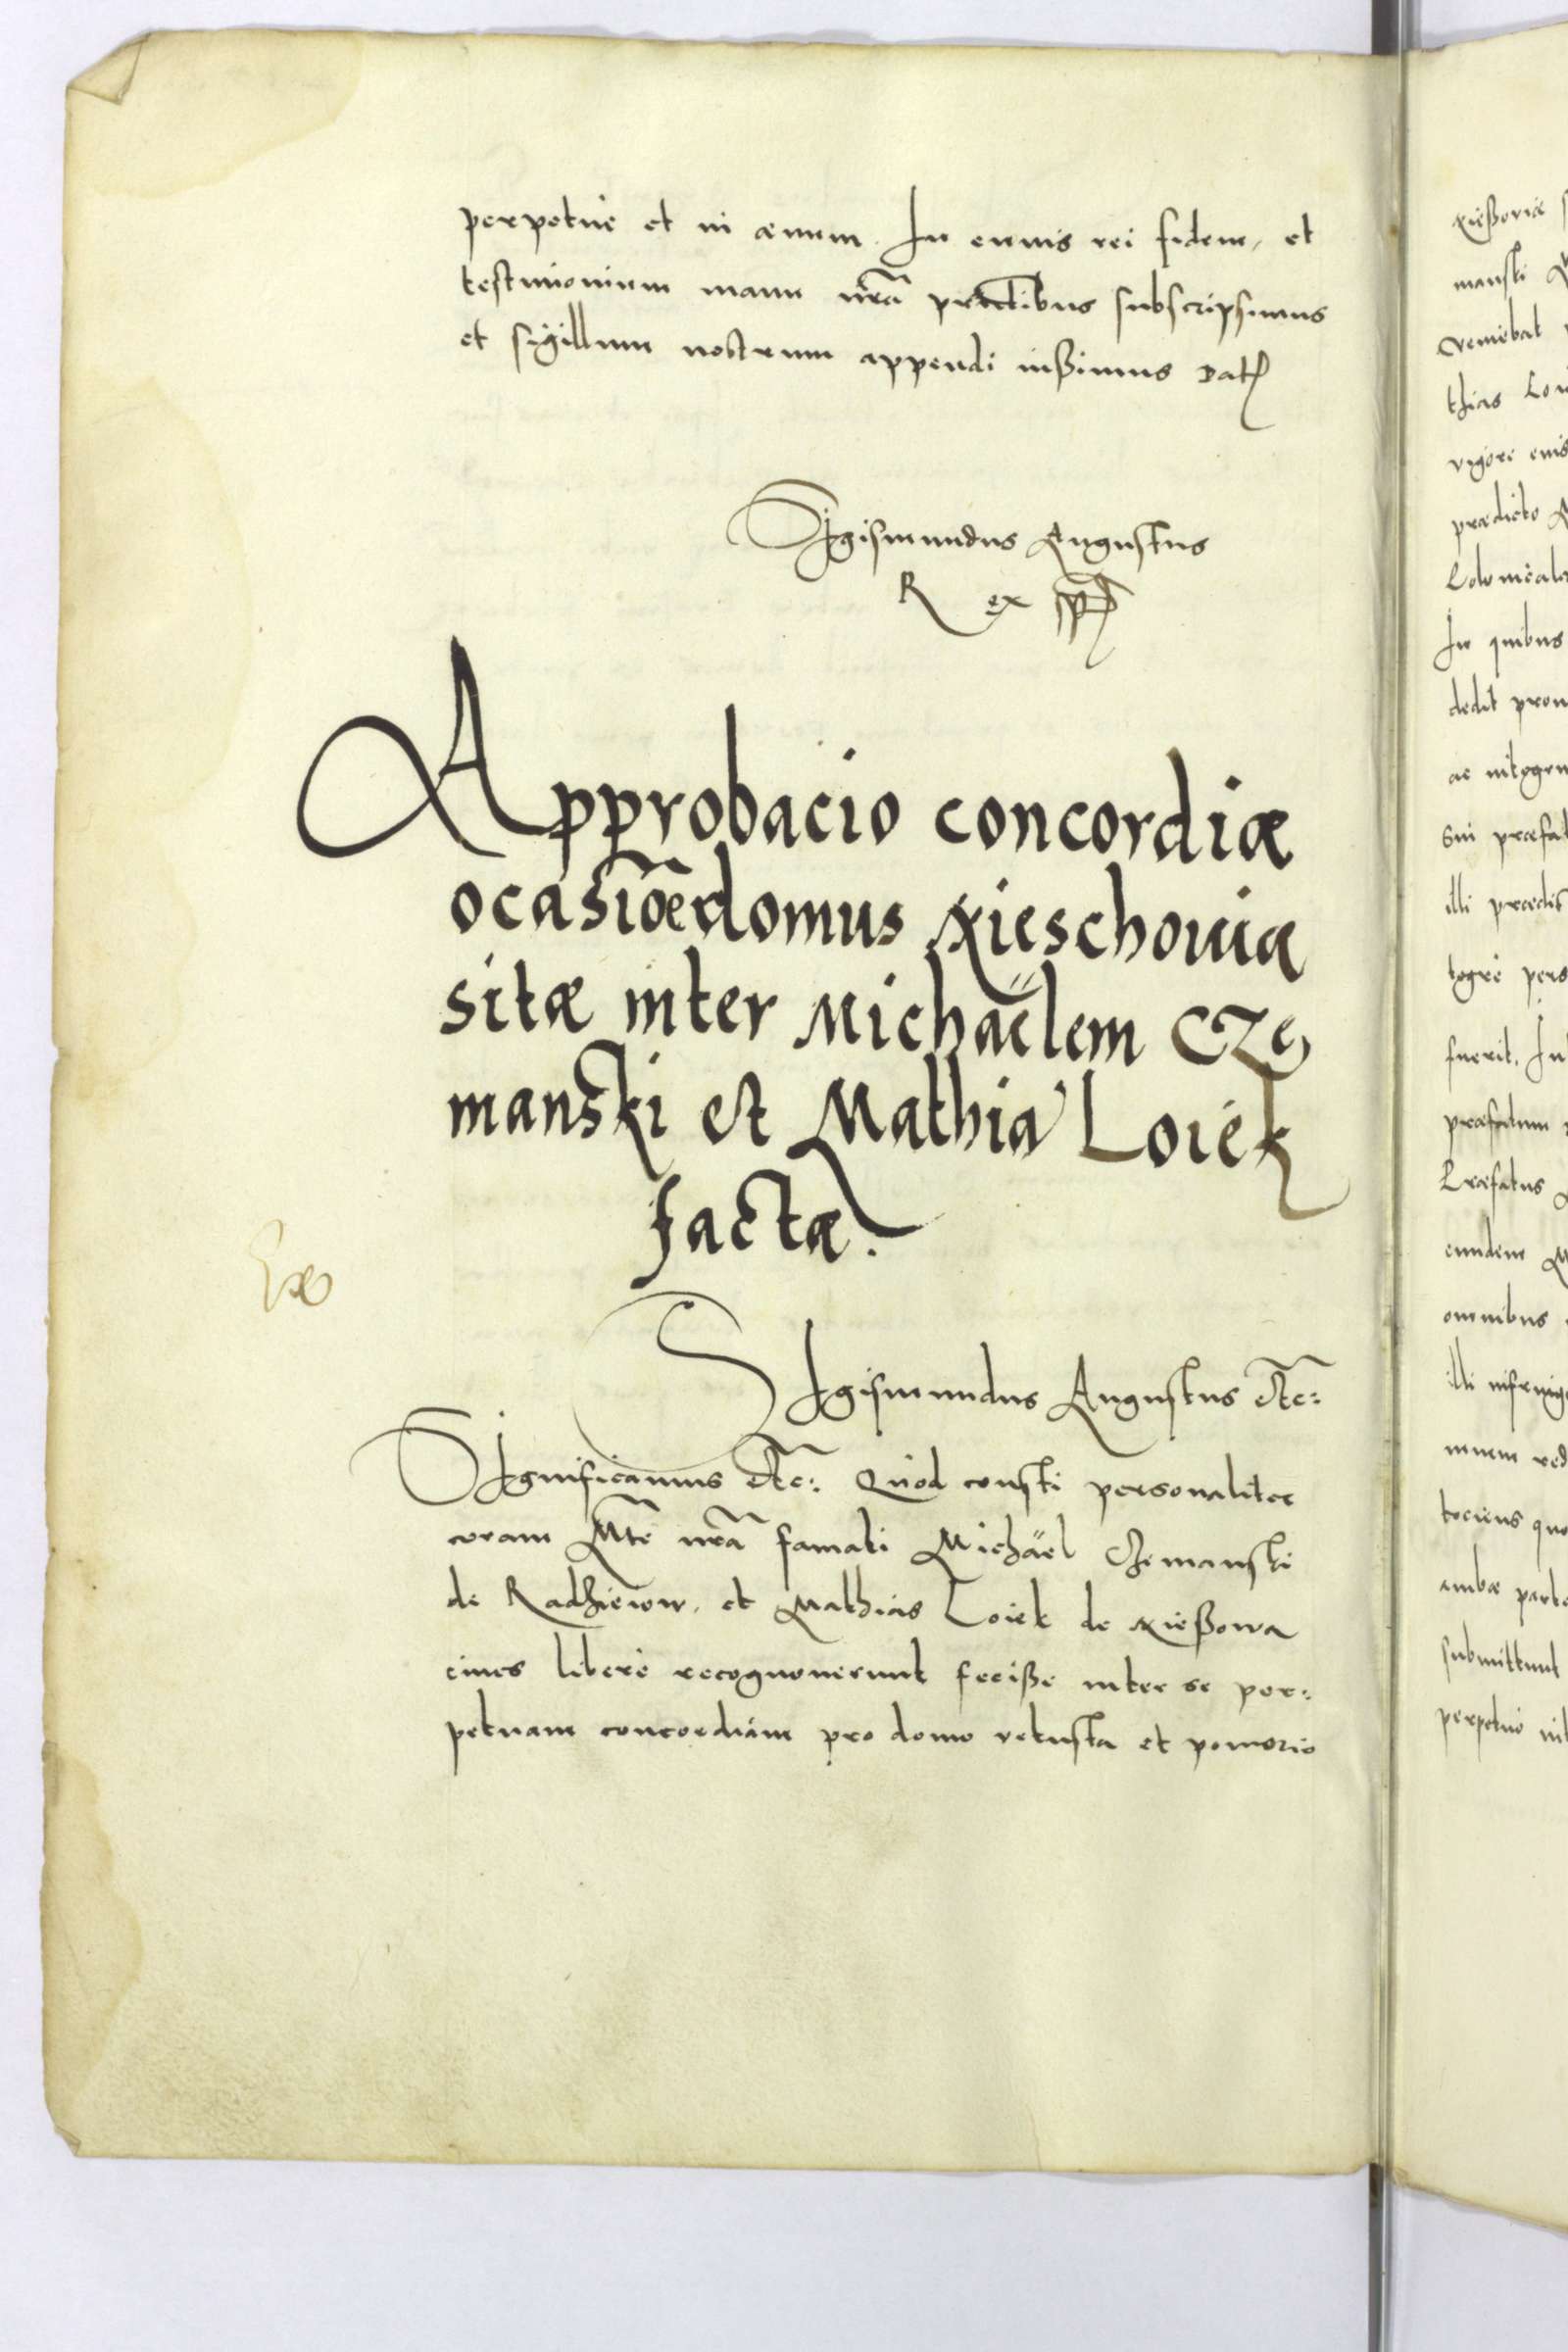 perpetuè et in æuum. In cuius rei fidem, et
testimonium manu nrã pñtibus subscripsimus
et sigillum nostrum appendi iußimus Dat
Sigismundus Augustus
Rex
Approbacio concordiæ
ocasiõe domus Xieschouiæ
sitæ inter Michaëlem Cze
manski et Mathia Loiek
factæ.
SIgismundus Augustus etc:
SIgnificamus etc: Quod consti personaliter
coram Mte nrã famati Michäel Czemanski
de Radzieiow, et Mathias Loiek de Xießowa
ciues liberè recognouerunt feciße inter se per:
petuam concordiam pro domo vetusta et pomorio
xießoviæ
manski
veniebat
thias
vigore
prædicto
In quibus
dedit
ac
sui
illi
fuerit.
Præfatus
eundem
omnibus
illi
tociens
ambæ
submittunt
perpetuo